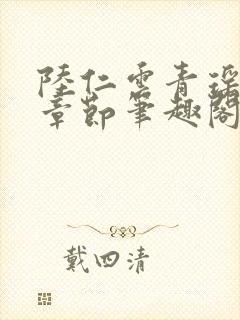 陸仁雲青瑤
章節筆趣閣
戴四清